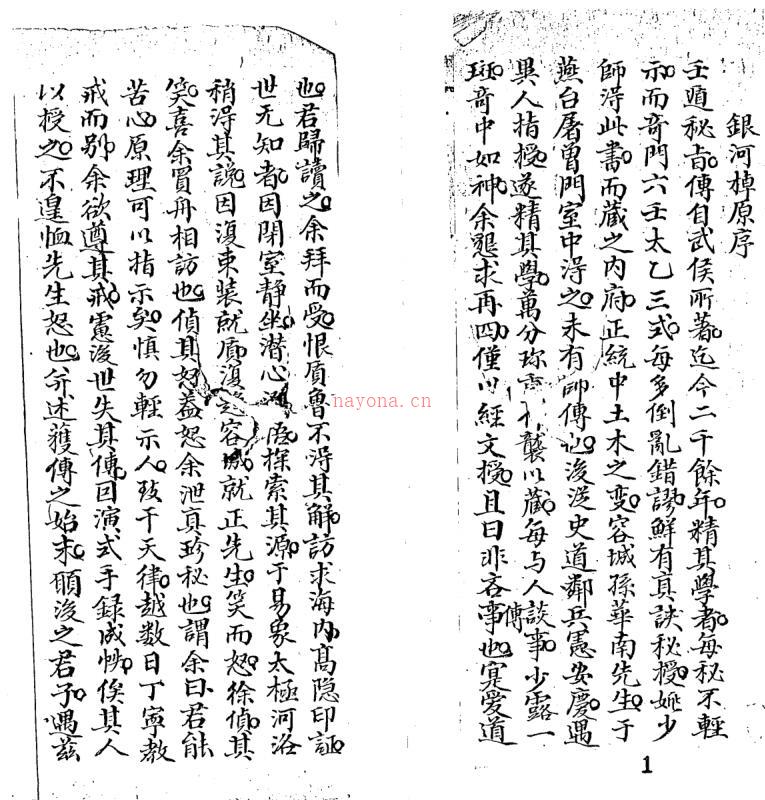 銀河棹原序
壬遁秘旨傳自武侯所著迄今二千餘年精其學者每秘不輕
示而奇門六壬太乙三式每多倒亂錯謬鮮有真訣秘授姚少
師得此書而藏之内府正統中土木之变容城孫華南先生于
燕台屠曾門室中得之未有師傳也後從史道鄰兵憲安慶遇
異人指授遂精其學萬分珍襲以藏每与人談事少露一
斑奇中如神余懇求再四僅以經文授且曰非吝事也寔爱道
傳
也君歸讀之余拜而受恨質魯不得其解訪求海内高隐印証
世无知者因閉室静坐潜心探索其源于易象太極河洛
稍得其說因復束装就質復之容城就正先生笑而怒徐偵其
笑喜余買舟相訪也偵其好葢怒余泄真珍秘也謂余曰君能
苦心原理可以指示矣慎勿輕示人致干天律越数日丁寧教
戒而别余欲遵其戒慮後世失其傳囙演式手録成帙俟其人
以授之不遑恤先生怒也并述獲傳之始末願後之君子遇兹
1
nayona.cn